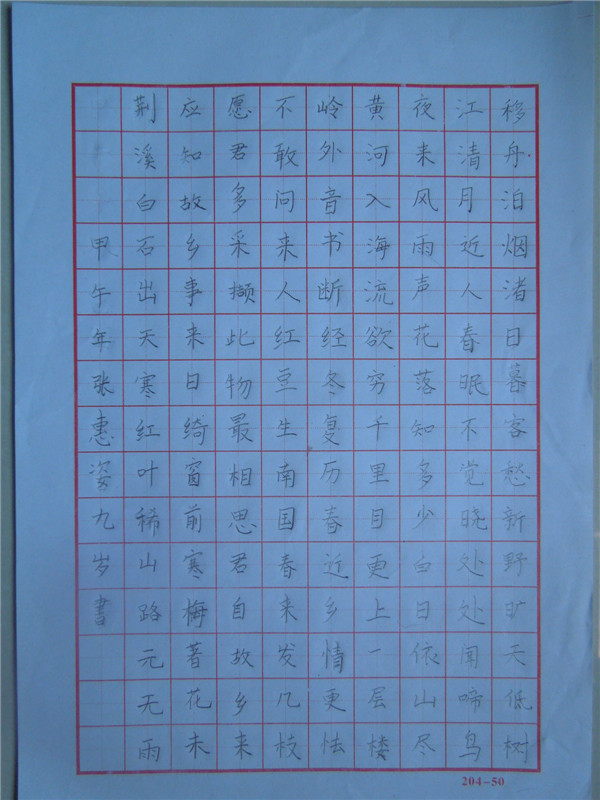 移舟泊烟渚日暮客愁新野旷天低树
江清月近人春眠不觉晓处处闻啼鸟
夜来风雨声花落知多少白日依山尽
黄河入海流欲穷千里目更上一层楼
岭外音书断经冬复历春近乡情更怯
不敢问来人红豆生南国春来发几枝
愿君多采撷此物最相思君自故乡来
应知故乡事来日绮窗前寒梅著花未
荆溪白石出天寒红叶稀山路元无雨
甲午年张惠姿九岁書
204-50